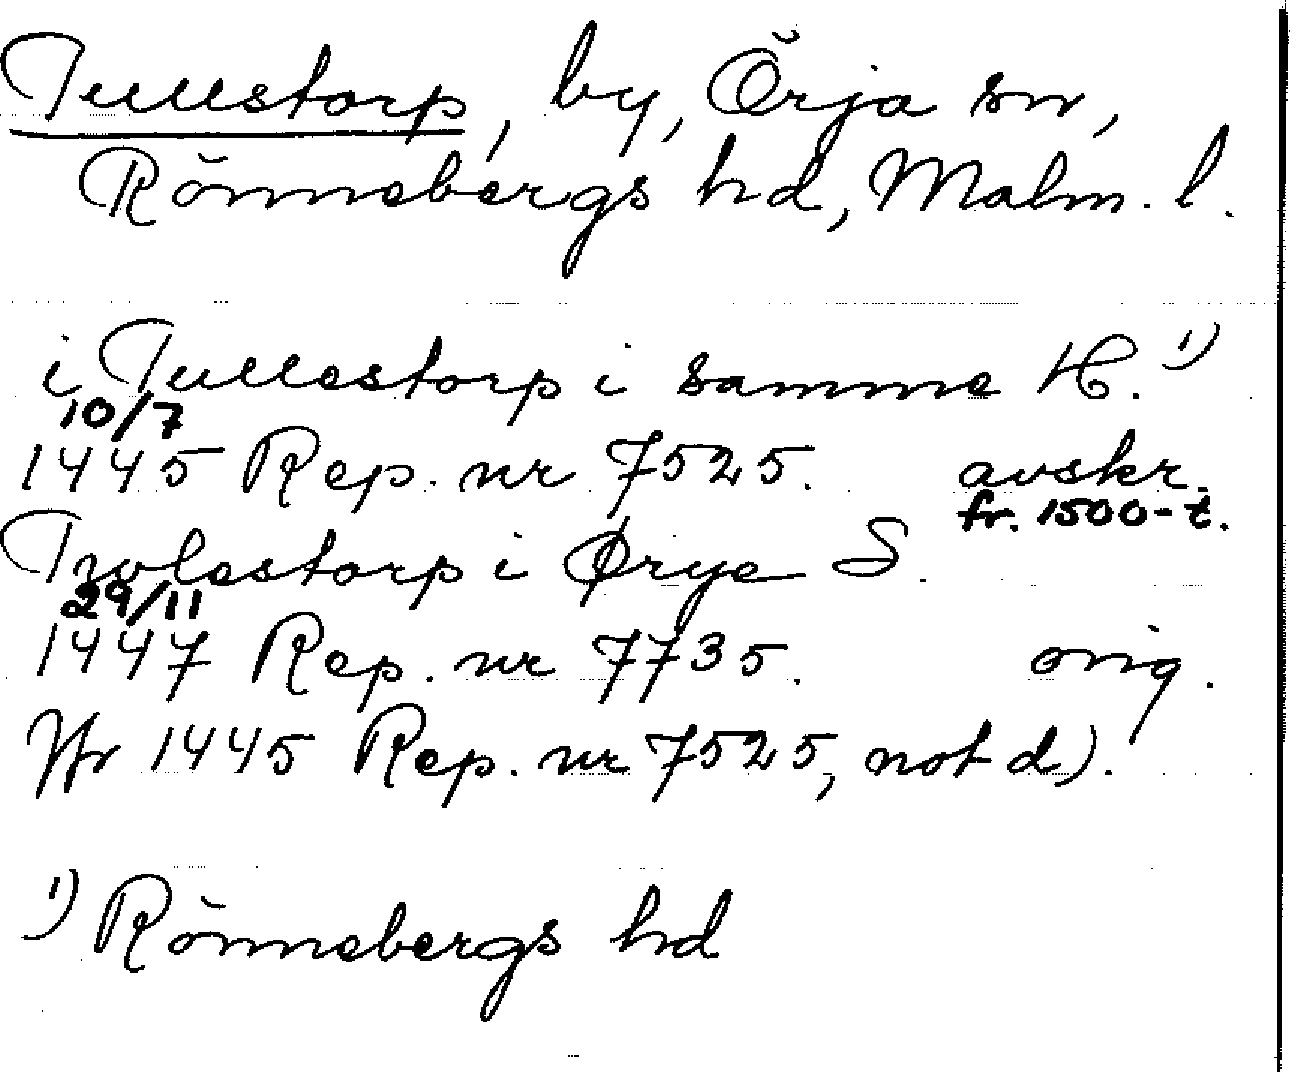 Tullstorp, by, Örja sn,
Rönnebergs hd, Malm. l.
i Tullestorp i samme H. 1)
10/7
1445 Rep. nr 7525. avskr.
fr. 1500-t.
Twlestorp i Ørye S.
29/11
1447 Rep. nr 7735. orig.
Jfr 1445 Rep. nr 7525, not d).
1) Rönnebergs hd